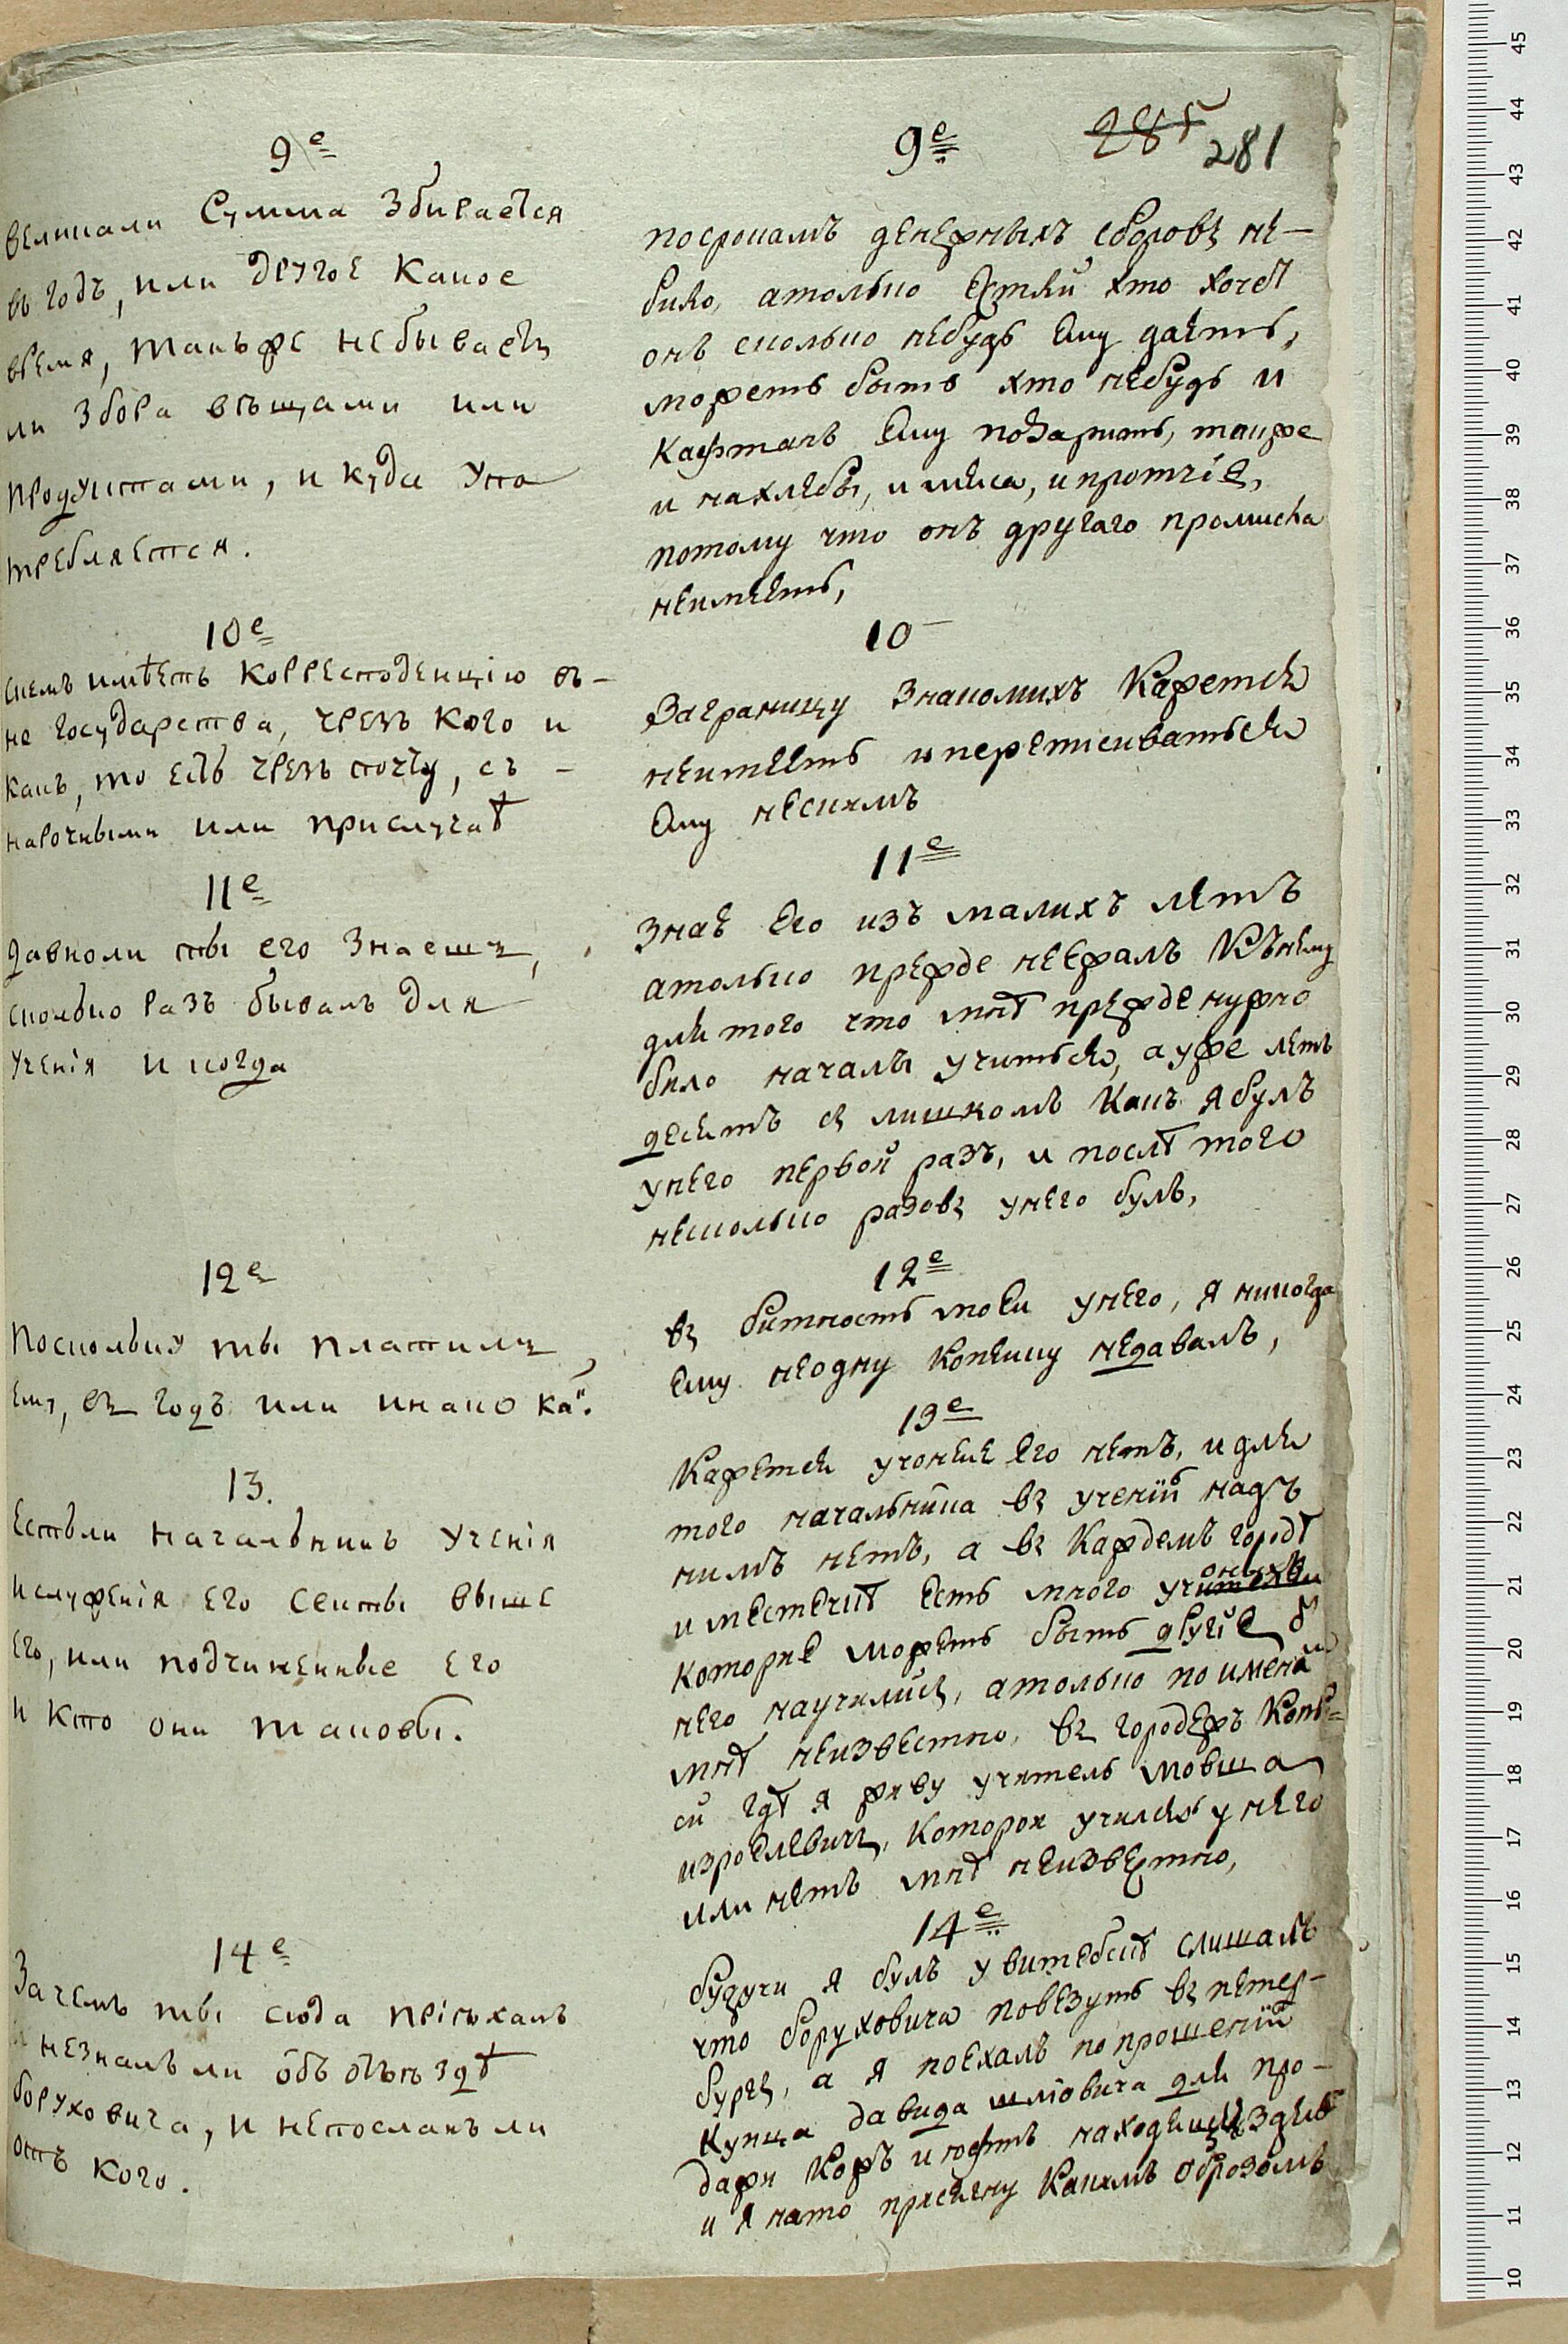 285 281
9е
велика ли Сумма Збирается
въ годъ, или другое какое
время, такъже небываетъ
ли Збора вѣщами или
продуктами, и куда упо
требляется.
10е
скемъ имѣетъ корресподенцію въ-
не государства, чрезъ кого и
какъ, то есть чрезъ почту, съ -
нарочными или прислугаѣ
11е
давноли ты его Знаешъ,
сколько разъ бывалъ для
ученія и когда
12е
Поскольку ты платилъ
ему, въ годъ или инако какъ.
13.
Естьли начальникъ ученія
ислуженія его секты выше
его, или подчиненные его
и кто они таковы.
14е
Зачемъ ты сюда пріѣхалъ
и незналъ ли объ отъѣздѣ
боруховича, и непосланъ ли
отъ кого.
9е
посрокамъ денежныхъ сборовъ не-
било, атолько Естли хто хочет
онъ сколько небудь Ему даетъ,
можетъ быть хто небудь и
Кафтанъ Ему подаритъ, также
и на хлебы, и мяса, и протчіе,
потому что онъ другаго промисла
неимеетъ,
10
Заграницу Знакомихъ Кажется
неимеетъ и переписиваться
Ему нескимъ
11е
Знае Его изъ малихъ летъ
атолько прежде неежалъ Къ нему
для того что мнѣ прежде нужно
било началы учиться, а уже летъ
десять съ лишкомъ Какъ я булъ
унего первой разъ, и послѣ того
несколько разовъ унего булъ,
12е
въ битность моеи унего, я никогда
Ему неодну Копейку недавалъ,
13е
Кажется учоние Его нетъ, и для
того начальника въ ученій надъ
нимъ нетъ, а въ Каждемъ городѣ
и местечкѣ Есть много
Которие можетъ быть другіе у
него научились, атолько по имена
мнѣ неизвестно, въ городежъ Копы=
си гдѣ я живу учитель мовша
изроелевичъ, Которои учился у него
или нетъ мнѣ неизвестно,
14е
будучи я булъ у витебскѣ слишалъ
что боруховича повезутъ въ петер-
бургъ, а я поехалъ по прошеній
Купца давида шліовича для про-
дажи Кожъ и юфтъ находящихся здесь
и я нато присягну Какимъ образомъ